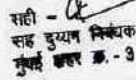 सही -
सह दुय्यम निबंधक
मुंबई शहर क्र. - ३